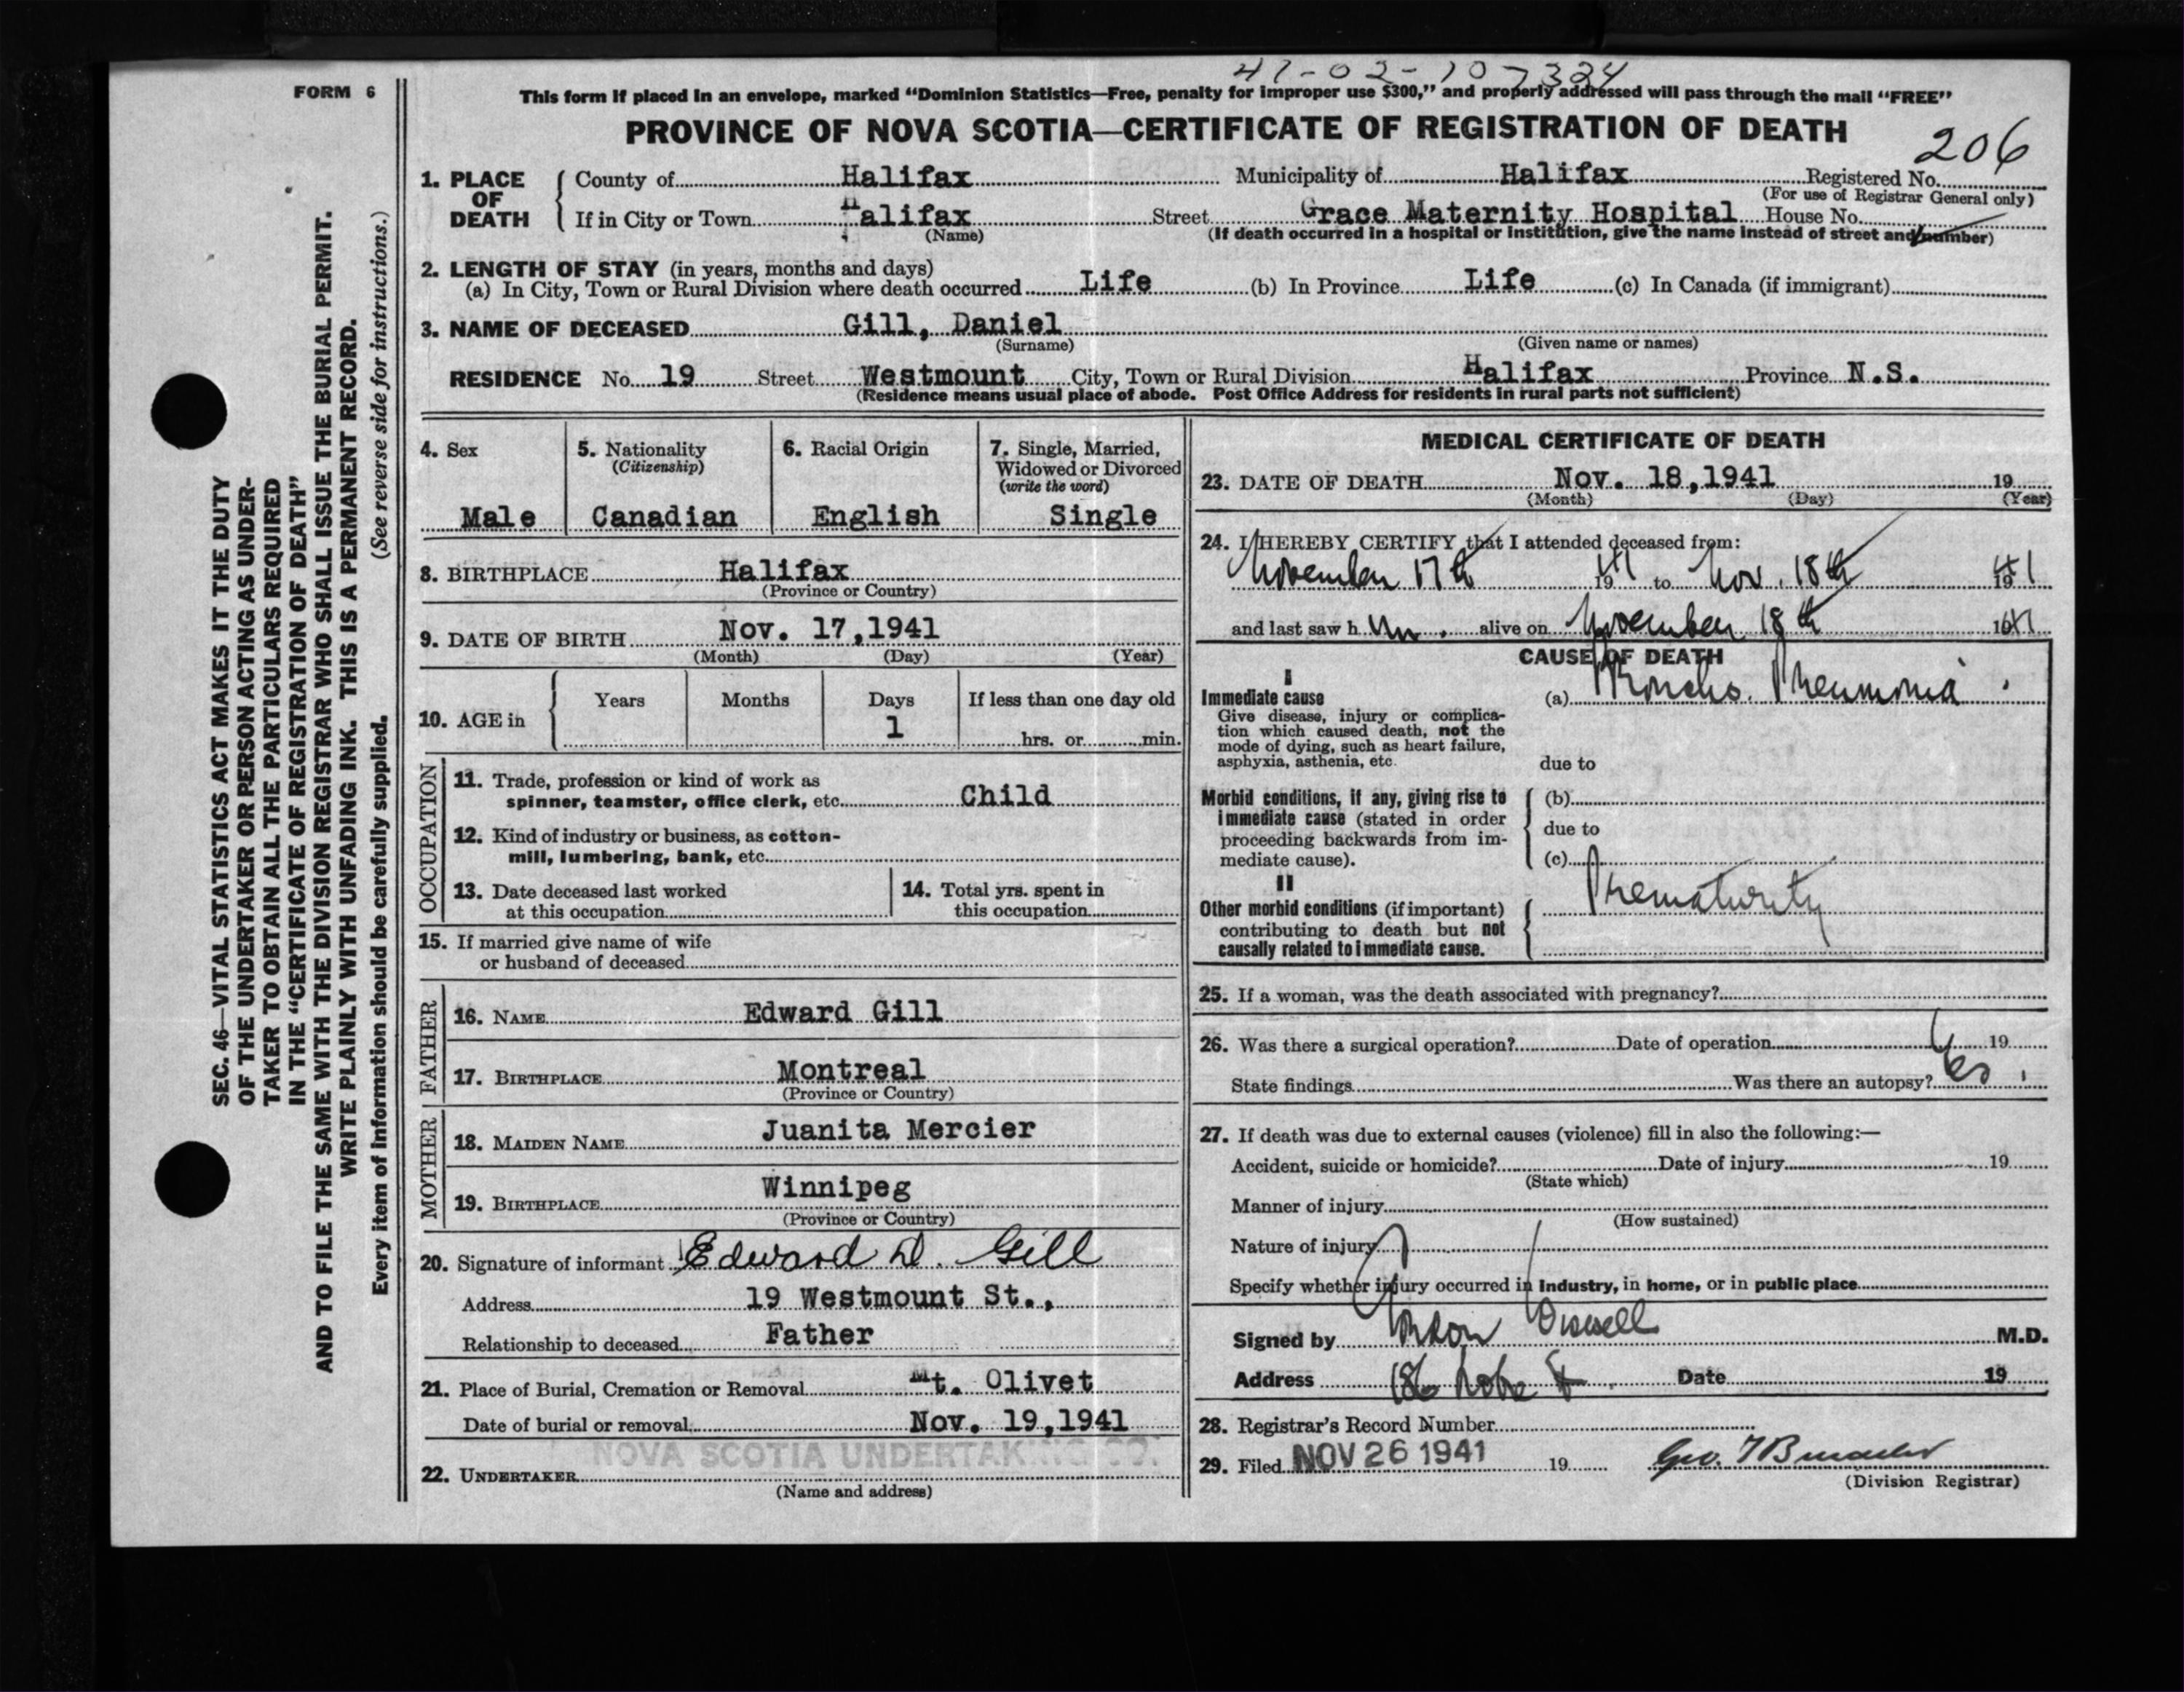 41-02-107324
FORM 6
This form if placed in an envelope, marked “Dominion Statistics—Free, penalty for improper use $300,” and properly addressed will pass through the mail “FREE”
PROVINCE OF NOVA SCOTIA—CERTIFICATE OF REGISTRATION OF DEATH
206
1. PLACE OF DEATH
County of Halifax Municipality of Halifax Registered No.
(For use of Registrar General only)
If in City or Town Halifax Street Grace Maternity Hospital House No.
(Name) (If death occurred in a hospital or institution, give the name instead of street and number)
2. LENGTH OF STAY (in years, months and days)
(a) In City, Town or Rural Division where death occurred Life (b) In Province Life (c) In Canada (if immigrant)
3. NAME OF DECEASED Gill, Daniel
(Surname) (Given name or names)
RESIDENCE No. 19 Street Westmount City, Town or Rural Division Halifax Province N.S.
(Residence means usual place of abode. Post Office Address for residents in rural parts not sufficient)
4. Sex
Male
5. Nationality
(Citizenship)
Canadian
6. Racial Origin
English
7. Single, Married,
Widowed or Divorced
(write the word)
Single
8. BIRTHPLACE Halifax
(Province or Country)
9. DATE OF BIRTH Nov. 17,1941
(Month) (Day) (Year)
10. AGE in
Years Months Days If less than one day old
1 hrs. or min.
OCCUPATION
11. Trade, profession or kind of work as
spinner, teamster, office clerk, etc. Child
12. Kind of industry or business, as cotton-
mill, lumbering, bank, etc.
13. Date deceased last worked
at this occupation
14. Total yrs. spent in
this occupation
15. If married give name of wife
or husband of deceased
FATHER
16. NAME Edward Gill
17. BIRTHPLACE Montreal
(Province or Country)
MOTHER
18. MAIDEN NAME Juanita Mercier
19. BIRTHPLACE Winnipeg
(Province or Country)
20. Signature of informant Edward D. Gill
Address 19 Westmount St.,
Relationship to deceased Father
21. Place of Burial, Cremation or Removal Mt. Olivet
Date of burial or removal Nov. 19,1941
NOVA SCOTIA UNDERTAKING CO.
22. UNDERTAKER
(Name and address)
MEDICAL CERTIFICATE OF DEATH
23. DATE OF DEATH Nov. 18,1941 19
(Month) (Day) (Year)
24. I HEREBY CERTIFY that I attended deceased from:
November 17th 1941 to Nov. 18th 1941
and last saw h im. alive on November 18th 1941
CAUSE OF DEATH
I
Immediate cause
Give disease, injury or complica-
tion which caused death, not the
mode of dying, such as heart failure,
asphyxia, asthenia, etc.
(a) Broncho. Pneumonia.
due to
Morbid conditions, if any, giving rise to
immediate cause (stated in order
proceeding backwards from im-
mediate cause).
(b)
due to
(c)
II
Other morbid conditions (if important)
contributing to death but not
causally related to immediate cause.
Prematurity
25. If a woman, was the death associated with pregnancy?
26. Was there a surgical operation? Date of operation 19
State findings Was there an autopsy? Yes.
27. If death was due to external causes (violence) fill in also the following:—
Accident, suicide or homicide? Date of injury 19
(State which)
Manner of injury
(How sustained)
Nature of injury
Specify whether injury occurred in industry, in home, or in public place
Signed by Gordon M.D.
Address 186 St. Date 19
28. Registrar's Record Number
29. Filed NOV 26 1941 19 Geo.
(Division Registrar)
SEC. 46—VITAL STATISTICS ACT MAKES IT THE DUTY
OF THE UNDERTAKER OR PERSON ACTING AS UNDER-
TAKER TO OBTAIN ALL THE PARTICULARS REQUIRED
IN THE “CERTIFICATE OF REGISTRATION OF DEATH”
AND TO FILE THE SAME WITH THE DIVISION REGISTRAR WHO SHALL ISSUE THE BURIAL PERMIT.
WRITE PLAINLY WITH UNFADING INK. THIS IS A PERMANENT RECORD.
Every item of information should be carefully supplied. (See reverse side for instructions.)